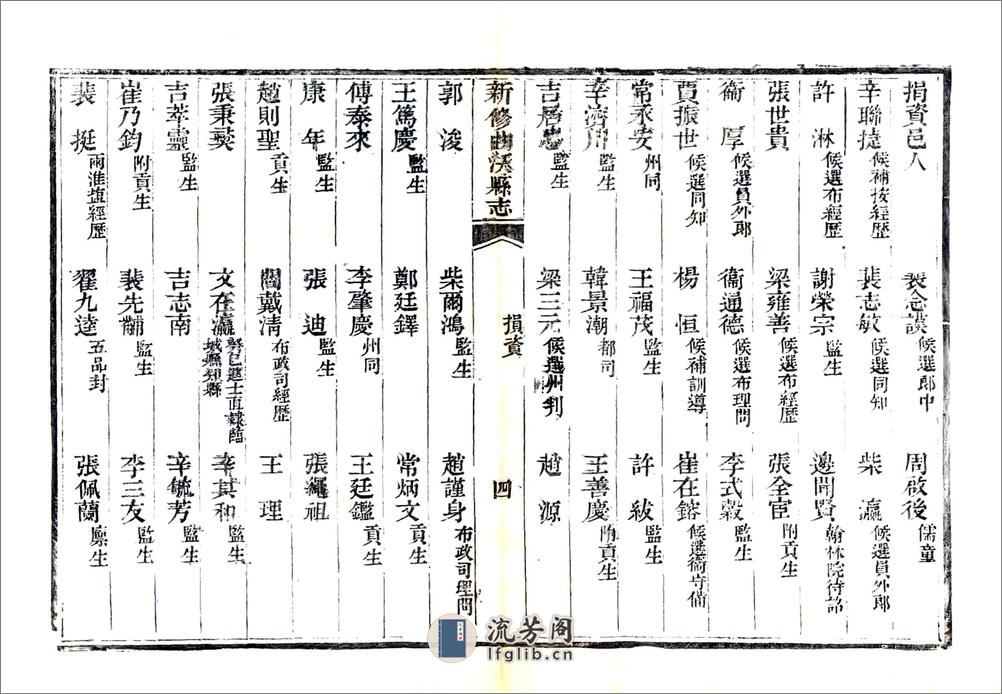 捐資邑人 裴念謨候選郎中 周啟後儒童
辛聯捷候補按經歷 裴志敏候選同知 柴瀛候選員外郎
許淋候選布經歷 謝榮宗監生 邊開賢翰林院待詔
張世貴 梁雍善候選布經歷 張全宦附貢生
衛厚候選員外郎 衛通德候選布理問 李式穀監生
賈振世候選同知 楊恒候補訓導 崔在鎔候選衛守備
常永安州同 王福茂監生 許紱監生
辛濟川監生 韓景潮都司 王善慶附貢生
吉居監生 梁三元候選州判 趙源
新修曲沃縣志 捐資 四
郭浚 柴爾鴻監生 趙謹身布政司理問
王篤慶監生 鄭廷鐸 常炳文貢生
傅泰來 李肇慶州同 王廷鑑貢生
康年監生 張迪監生 張繩祖
趙則聖貢生 閻戴清布政司經歷 王理
張秉燹監生 文在瀛癸巳進士直隸臨城縣知縣 辛其和監生
吉萃靈監生 吉志南 辛毓芳監生
崔乃鈞附貢生 裴先黼監生 李三友監生
裴挺兩淮鹽經歷 翟九逵五品封 張佩蘭廩生
流芳閣
lfglib.cn